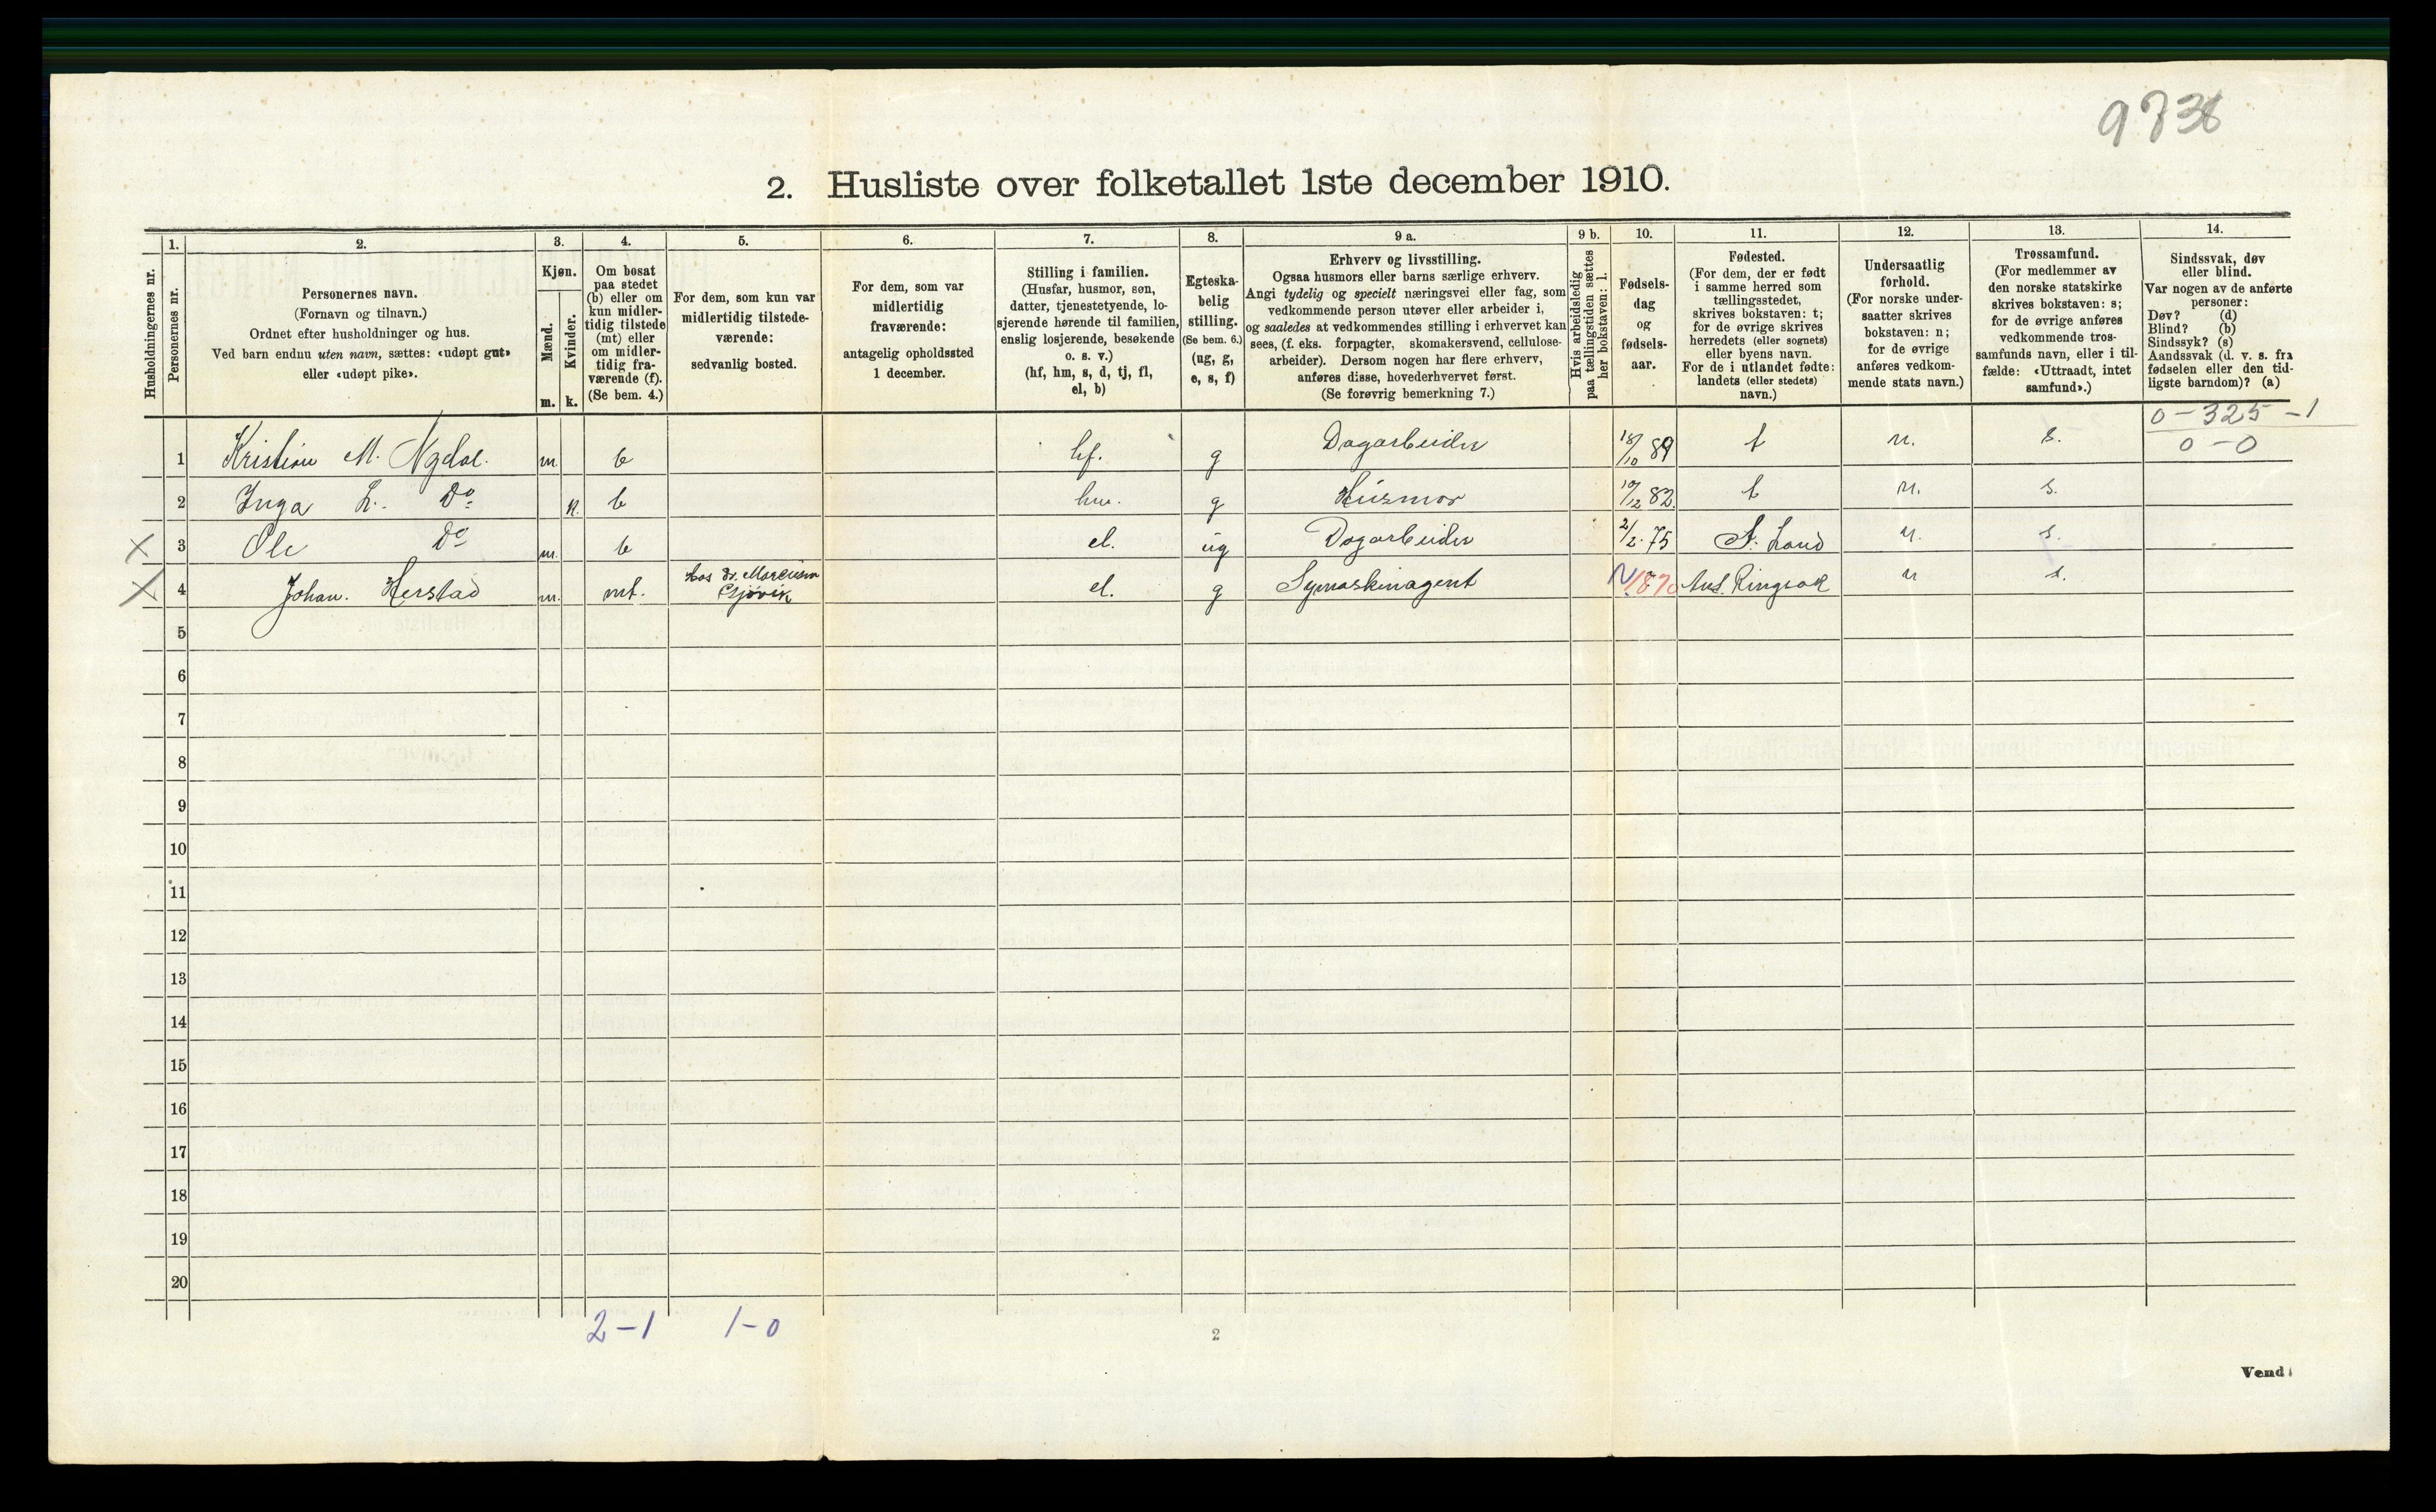 9738
2. Husliste over folketallet 1ste december 1910.
Husholdningernes nr.
1.
Personernes nr.
2.
Personernes navn.
(Fornavn og tilnavn.)
Ordnet efter husholdninger og hus.
Ved barn endnu uten navn, sættes: «udøpt gut»
eller «udøpt pike».
3.
Kjøn.
Mænd.
Kvinder.
m. k.
4.
Om bosat
paa stedet
(b) eller om
kun midler-
tidig tilstede
(mt) eller
om midler-
tidig fra-
værende (f).
(Se bem. 4.)
5.
For dem, som kun var
midlertidig tilstede-
værende:
sedvanlig bosted.
6.
For dem, som var
midlertidig
fraværende:
antagelig opholdssted
1 december.
7.
Stilling i familien.
(Husfar, husmor, søn,
datter, tjenestetyende, lo-
sjerende hørende til familien,
enslig losjerende, besøkende
o. s. v.)
(hf, hm, s, d, tj, fl,
el, b)
8.
Egteska-
belig
stilling.
(Se bem. 6.)
(ug, g,
e, s, f)
9 a.
Erhverv og livsstilling.
Ogsaa husmors eller barns særlige erhverv.
Angi tydelig og specielt næringsvei eller fag, som
vedkommende person utøver eller arbeider i,
og saaledes at vedkommendes stilling i erhvervet kan
sees, (f. eks. forpagter, skomakersvend, cellulose-
arbeider). Dersom nogen har flere erhverv,
anføres disse, hovederhvervet først.
(Se forøvrig bemerkning 7.)
9 b.
Hvis arbeidsledig
paa tællingstiden sættes
her bokstaven: l.
10.
Fødsels-
dag
og
fødsels-
aar.
11.
Fødested.
(For dem, der er født
i samme herred som
tællingsstedet,
skrives bokstaven: t;
for de øvrige skrives
herredets (eller sognets)
eller byens navn.
For de i utlandet fødte:
landets (eller stedets)
navn.)
12.
Undersaatlig
forhold.
(For norske under-
saatter skrives
bokstaven: n;
for de øvrige
anføres vedkom-
mende stats navn.)
13.
Trossamfund.
(For medlemmer av
den norske statskirke
skrives bokstaven: s;
for de øvrige anføres
vedkommende tros-
samfunds navn, eller i til-
fælde: «Uttraadt, intet
samfund».)
14.
Sindssvak, døv
eller blind.
Var nogen av de anførte
personer:
Døv? (d)
Blind? (b)
Sindssyk? (s)
Aandssvak (d. v. s. fra
fødselen eller den tid-
ligste barndom)? (a)
0-325-1
0-0
1 Kristian M. m. b hf. g Dagarbeider 18/10 89 t n. s.
2 Inga L. Do k. b hm. g Husmor 19/12 82. t n. s.
X 3 Ole Do m. b el. ug Dagarbeider 2/2. 75 S. Land n. s.
X 4 Johan. Herstad m. mt. Gjøvik el. g Symaskinagent 1870 Ringsak n s.
5
6
7
8
9
10
11
12
13
14
15
16
17
18
19
20
2-1 1-0
2
Vend!